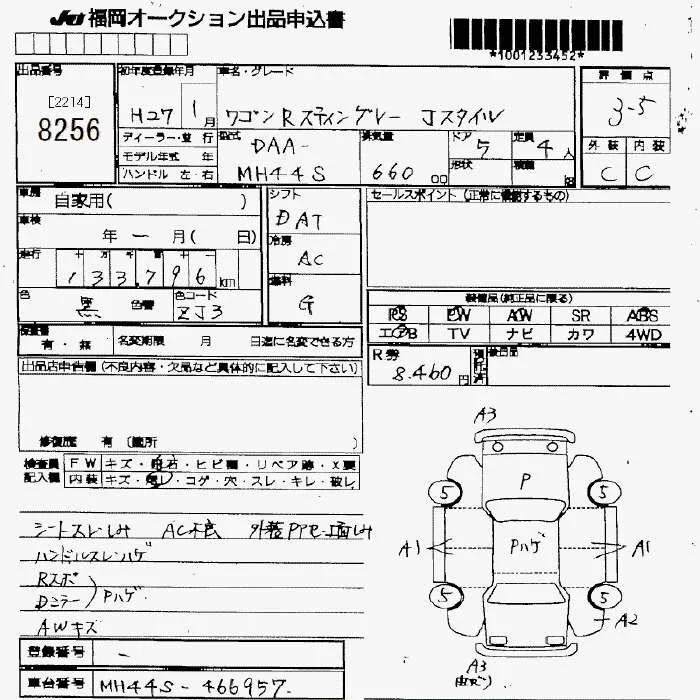 JU 福岡オークション出品申込書
*1001233452*
出品番号
[2214]
8256
初年度登録年月
H27 1月
車名・グレード
ワゴンR スティングレー Jスタイル
評価点
3-5
外装 内装
C C
ディーラー・並行
モデル年式 年
ハンドル 左・右
型式
DAA-
MH44S
排気量
660 00
ドア
5
形状
定員
4人
積載
車歴
自家用( )
車検
年 - 月( 日)
走行
十 万 千 百 十 一
133,796 km
色
黒 色替
色コード
ZJ3
シフト
DAT
冷房
AC
燃料
G
セールスポイント (正常に機能するもの)
装備品(純正品に限る)
PS PW AW SR ABS
エアB TV ナビ カワ 4WD
有・無 名変期限 月 日迄に名変できる方
R券
8,460円
後日品
出品店申告欄 (不良内容・欠品など具体的に記入して下さい)
修復歴 有 〔箇所 〕
検査員 FW キズ・飛石・ヒビ割・リペア跡・X要
記入欄 内装 キズ・汚レ・コゲ・穴・スレ・キレ・破レ
シートスレ・しみ AC不良
ハンドルスレ・ハゲ
Rスポ
Dミラー ) Pハゲ
AWキズ
登録番号 -
車台番号 MH44S-466957
A3
P
5 5
A1 Pハゲ A1
5 5
A2
A3